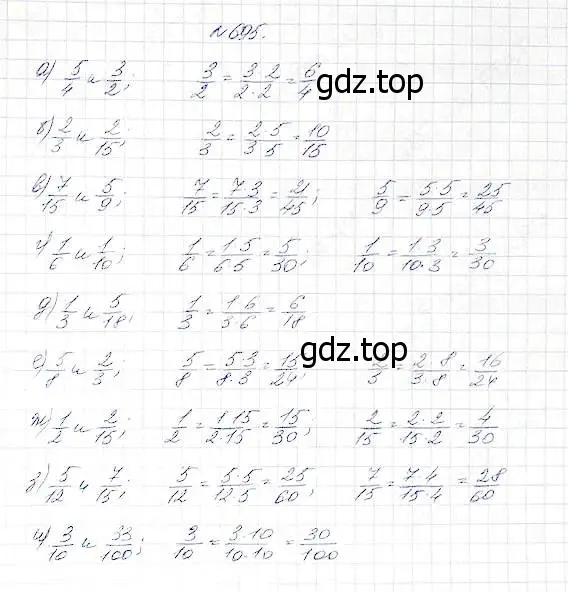 №695.
а) 5/4 и 3/2; 3/2 = 3·2/2·2 = 6/4
gdz.top
б) 2/3 и 2/15; 2/3 = 2·5/3·5 = 10/15
в) 7/15 и 5/9; 7/15 = 7·3/15·3 = 21/45; 5/9 = 5·5/9·5 = 25/45
г) 1/6 и 1/10; 1/6 = 1·5/6·5 = 5/30; 1/10 = 1·3/10·3 = 3/30
д) 1/3 и 5/18; 1/3 = 1·6/3·6 = 6/18
gdz.top
е) 5/8 и 2/3; 5/8 = 5·3/8·3 = 15/24; 2/3 = 2·8/3·8 = 16/24
ж) 1/2 и 2/15; 1/2 = 1·15/2·15 = 15/30; 2/15 = 2·2/15·2 = 4/30
з) 5/12 и 7/15; 5/12 = 5·5/12·5 = 25/60; 7/15 = 7·4/15·4 = 28/60
и) 3/10 и 33/100; 3/10 = 3·10/10·10 = 30/100